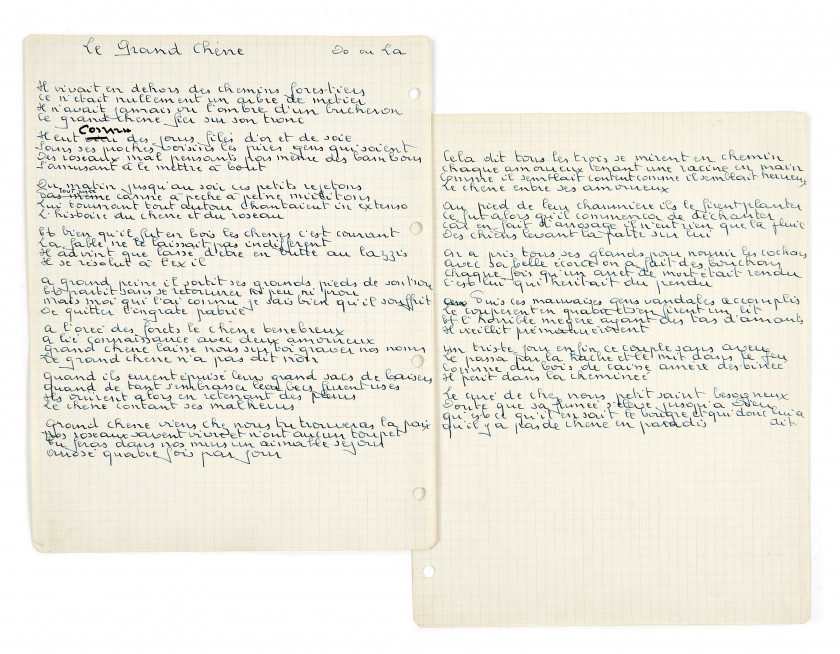 Le Grand Chêne Do ou La
Il vivait en dehors des chemins forestiers
Ce n'était nullement un arbre de métier
Il n'avait jamais vu l'ombre d'un bucheron
Ce grand chêne fier sur son tronc
Connu
Il eut des jours filés d'or et de soie
Sans ses proches voisins les pires gens qui soient
Des roseaux mal pensants pas même des bambous
S'amusant à le mettre à bout
Du matin jusqu'au soir ces petits rejetons
Tout juste
pas même canne à pêche à peine mirlitons
Lui tournant tout autour chantaient in extenso
L'histoire du chêne et du roseau
Et bien qu'il fut en bois les chênes c'est courant
La fable ne le laissait pas indifférent
Il advint que lassé d'être en butte au lazzis
Il se résolut à l'exil
A grand peine il sortit ses grands pieds de son trou
Et partit sans se retourner ni peu ni prou
Mais moi qui l'ai connu je sais bien qu'il souffrit
De quitter l'ingrate patrie
A l'orée des forêts le chêne ténébreux
A lié connaissance avec deux amoureux
Grand chêne laisse nous sur toi graver nos noms
Le grand chêne n'a pas dit non
Quand ils eurent épuisé leurs grands sacs de baisers
Quand de tant s'embrasser leurs becs furent usés
Ils ouïrent alors en retenant des pleurs
Le chêne contant ses malheurs
Grand chêne viens chez nous tu trouveras la paix
Nos roseaux savent vivre et n'ont aucun toupet
Tu feras dans nos murs un aimable séjour
Arrosé quatre fois par jour
Cela dit tous les trois se mirent en chemin
Chaque amoureux tenant une racine en main
Comme il semblait content comme il semblait heureux
Le chêne entre ses amoureux
Au pied de leur chaumière ils le firent planter
Ce fut alors qu'il commença de déchanter
Car en fait d'arrosage il n'eut rien que la pluie
Des chiens levant la patte sur lui
On a pris tous ses glands pour nourrir les cochons
Avec sa belle écorce on a fait des bouchons
Chaque fois qu'un arrêt de mort était rendu
C'est lui qui héritait du pendu
Puis ces mauvaises gens vandales accomplis
Le coupèrent en quatre et s'en firent un lit
Et l'horrible mégère ayant des tas d'amants
Il vieillit prématurément
Un triste jour enfin ce couple sans aveu
Le passa par la hache et le mit dans le feu
Comme du bois de caisse amère destinée
Il périt dans la cheminée
Le curé de chez nous petit saint besogneux
Doute que sa fumée s'élève jusqu'à Dieu
Qu'est-ce qu'il en sait le bougre et qui donc lui a
Qu'il y a pas de chêne en paradis dit